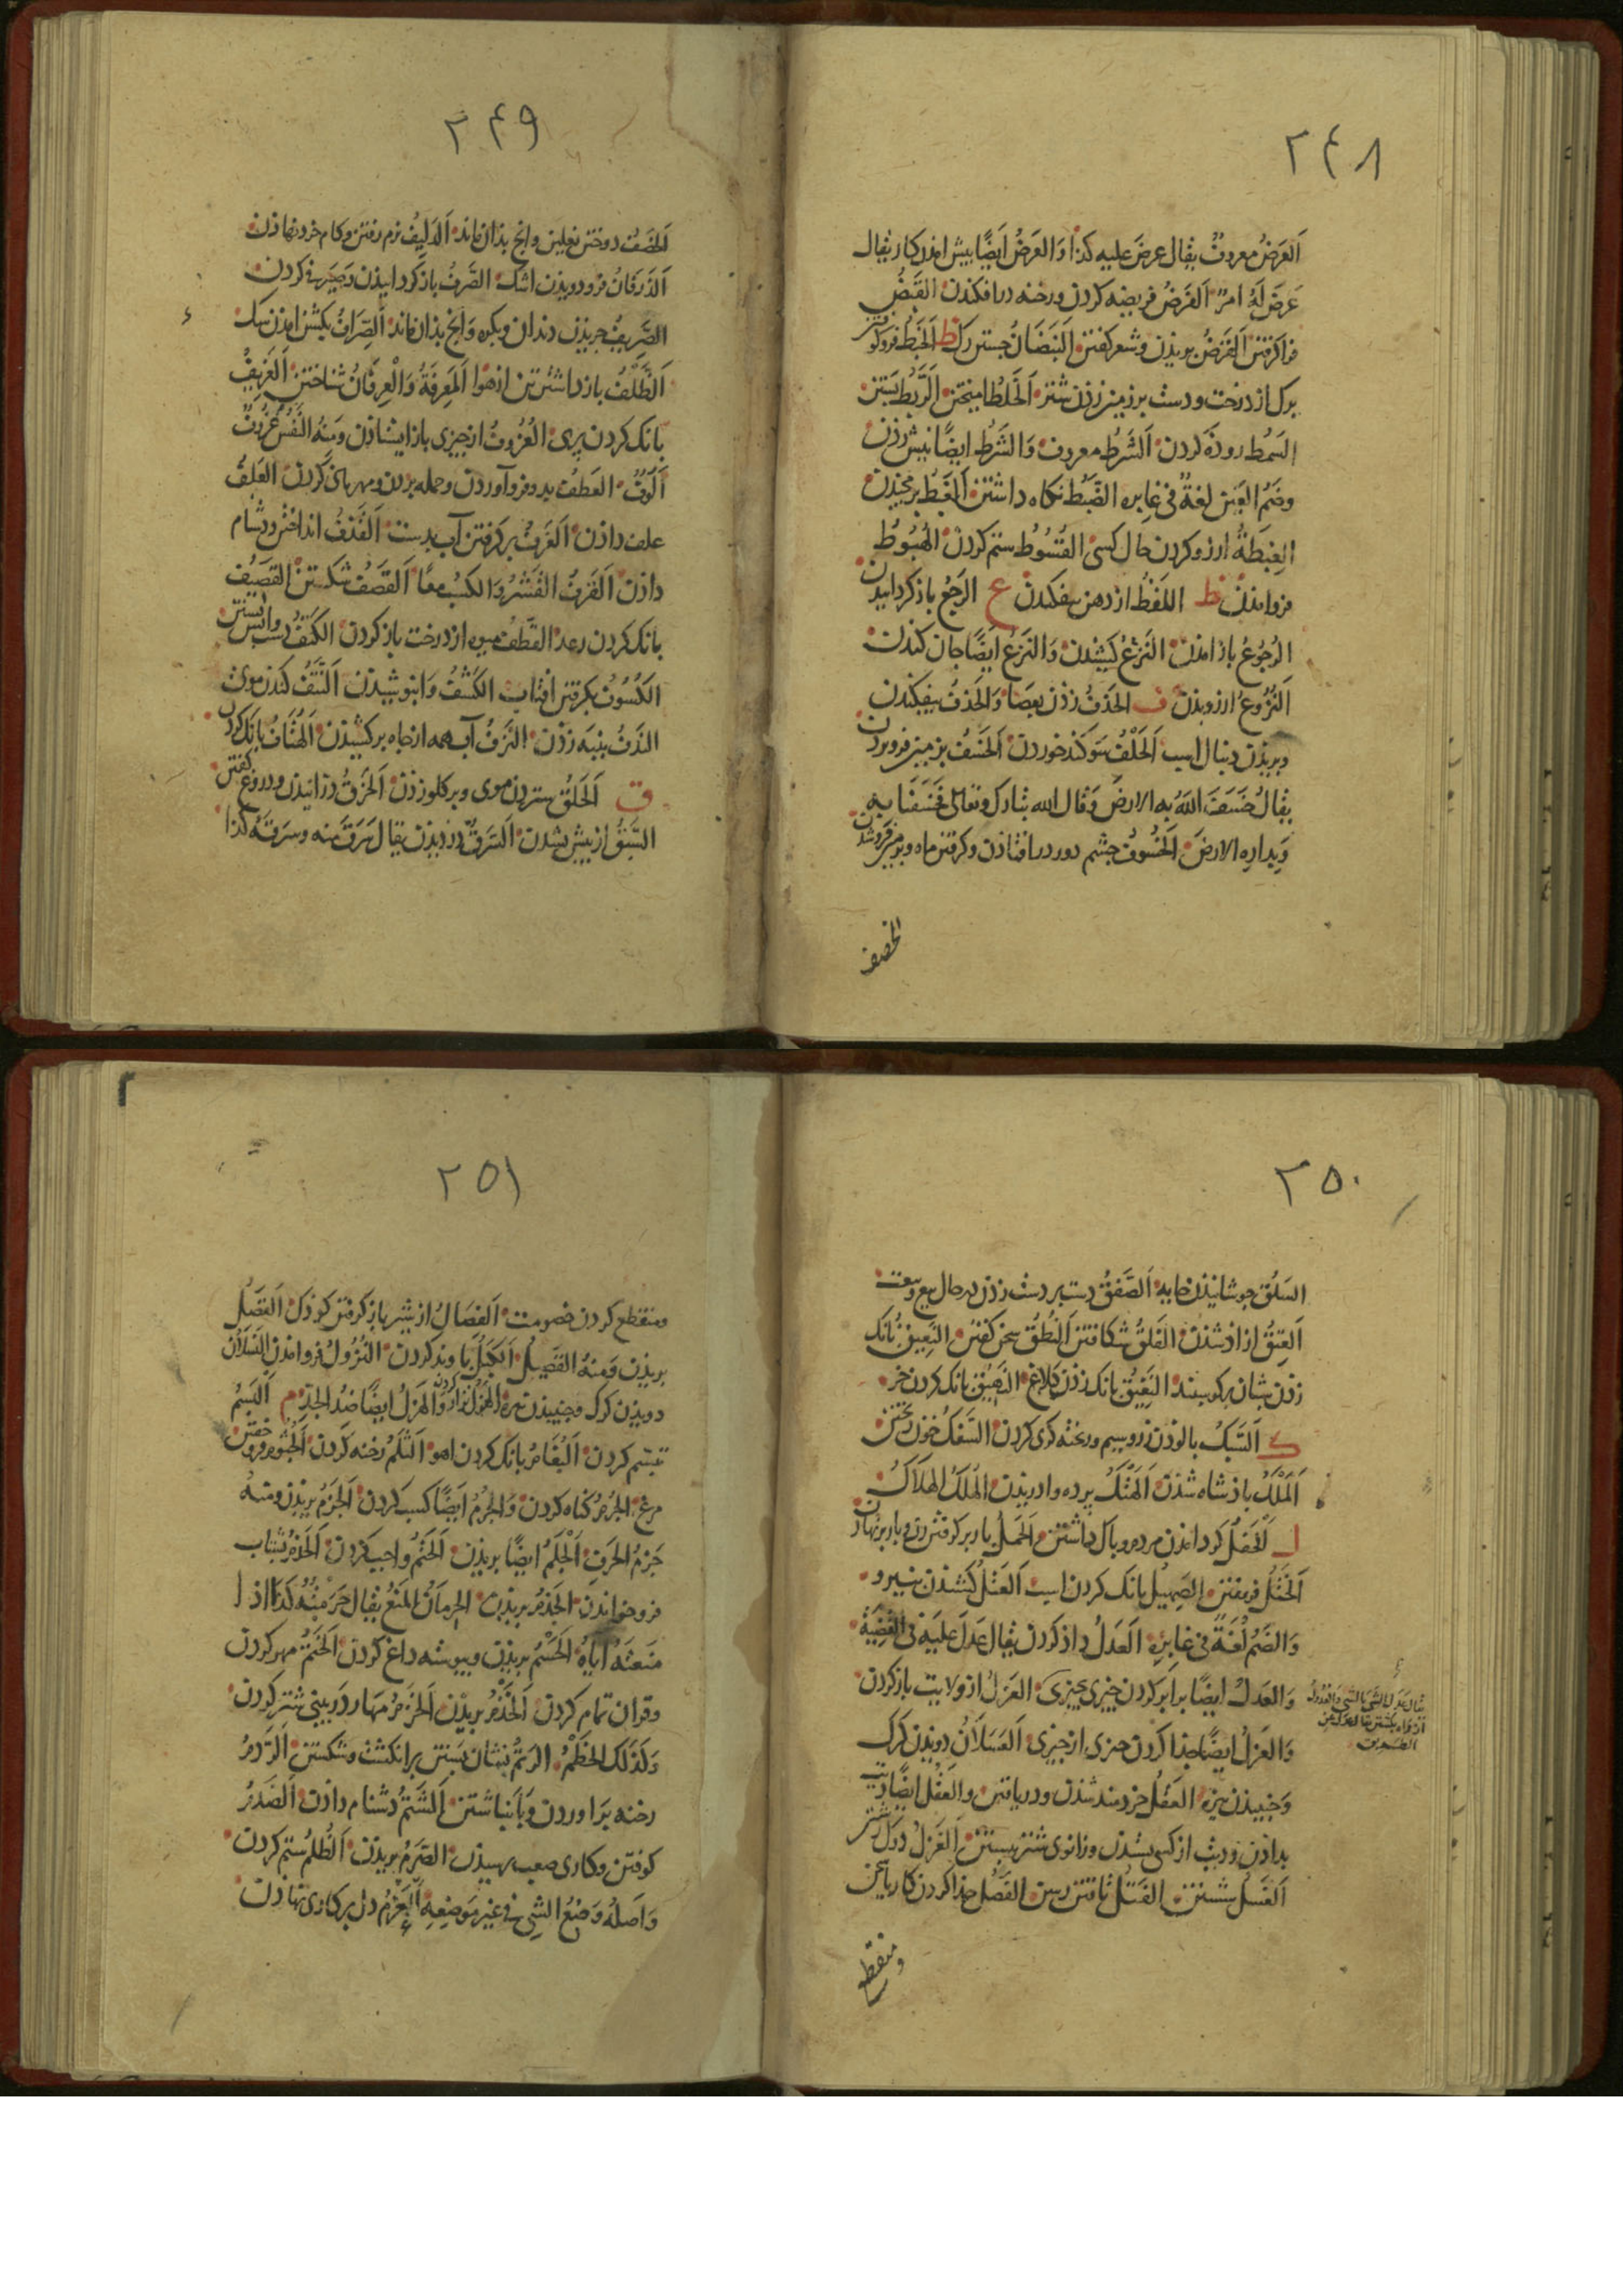 ٢٤٨
اَلعَرْضُ معروفٌ یقال عرضَ علیه کذا وَالعَرضُ اَیضًا پیش امذن کار یقال
عَرَضَ لَهُ امرٌ اَلفَرْضُ فریضه کردن ورخنه درافکندن القَبضُ
فراکرفتن اَلقَرْضُ بریذن وشعر کفتن اَلنَبَضَانُ جستن رک ط اَلخَبْطُ فروکوفتن
برک از درخت ودست بر زمین زذن شتر اَلخَلطُ امیختن اَلرَّبطُ بَستن
السَمْطُ روذه کردن اَلشَرْطُ معروف وَالشَرْطُ ایضًا نیش زذن
وضَمُّ العَین لغةٌ فی غابره الضَبْط نکاه داشتن
الغِبطَةُ ارزو کردن حال کسی القُسُوطُ ستم کردن الهُبُوطُ
فروامذن ظ اللَفْظُ از دهن بیفکندن ع الرَجْعُ بازکردانیدن
الرُجُوعُ بازامذن النَزعُ کشیدن وَالنَزعُ ایضًا جان کندن
اَلنُزُوعُ ارزومذن ف الحَذفُ زذن بعصَا وَالحَذفُ بیفکندن
وبریذن دنبال اسب اَلحَلْفُ سَوکند خوردن اَلخَسْفُ بزمین فروبردن
یقالُ خَسَفَ اللّهُ به الارضَ وَقال الله تبارک وتعالی فَخَسَفنَا بِهِ
وَبِدارِهِ الارضَ اَلخُسُوفُ چشم دور درافتاذن وکرفتن ماه وبزمین فروشدن
الخصف
٢٤٩
اَلخَصْفُ دوختن نعلین وانچ بذان ماند اَلدَلِیفُ نرم رفتن وکام خرد نهاذن
اَلذَرَفَانُ فرودویذن اشک الصَرفُ بازکردانیذن وَصَیرفی کردن
الصَرِیفُ جریذن دندان وبکره وَانچ بذان ماند اَلصِرَافُ بکشن امذن سک
اَلظَلْفُ بازداشتن تن از هَوا اَلمَعرِفَةُ وَالْعِرفَانُ شناختن اَلعَزِیفُ
بانک کردن پری العُزُوفُ ازچیزی بازایستاذن ومنهُ النَفْسُ عَزُوفٌ
اَلُوفٌ العَطفُ بدو فروآوردن وحمله بردن ومهربانی کردن العَلفُ
علف داذن اَلغَرْفُ برکرفتن آب بدست اَلقَذفُ انداختن ودشنام
داذن اَلقَرْفُ القَشْرُ وَالکسْبُ معًا اَلقَصْفُ شکستن القَصِیفُ
بانک کردن رعد القَطْفُ میوه از درخت بازکردن الکَتْفُ دست واپس بستن
الکُسُوفُ بکرفتن افتاب الکَشْفُ وَابوشیدن اَلنَتْفُ کندن موی
النَدفُ پنبه زذن النَزفُ آب همه ازچاه برکشیذن الهُتَافُ بانک کردن
ق اَلحَلقُ ستردن موی وبرکلو زذن اَلخَرقُ درانیذن ودروغ کفتن
السَبْقُ از پیش بشدن اَلسَرَقُ دزدیذن یقال سَرَقَ منه وسرَقهُ کذا
٢٥٠
السَلْقُ جوشانیذن خایه اَلصَفقُ دست بر دست زذن در حال بیع وبیعت
اَلعِتقُ ازاذ شذن الفَلقُ شکافتن اَلنُطْقُ سخن کفتن النَعِیقُ بانک
زذن شبان برکوسبند النَغِیقُ بانک زذن کلاغ النَهِیقُ بانک کردن خر
ک اَلسَبْکُ پالوذن زر وسیم وریخته کری کردن السَفکُ خون ریختن
اَلمُلْکُ باذشاه شذن اَلهَتْکُ پرده وادریذن الهُلکُ الهَلَاکُ
ل اَلحَفلُ کرد امذن مردم وباک داشتن والحَملُ بار برکرفتن زن وبار برنهاذن
اَلخَتلُ فریفتن الصَهِیلُ بانک کردن اسب اَلعَتلُ کشیدن بنیرو
وَالضَمُّ لُغَةٌ فی غابِرِه العَدلُ داذ کردن یقال عَدلَ علَیهِ فی القَضِیَّةِ
وَالعَدلُ ایضًا برابر کردن چیزی بچیزی العَزلُ از ولایت بازکردن
وَالعَزلُ ایضًا جذا کردن چیزی از چیزی العَسَلَانُ دویذن کرک
وَجنبیذن نیزه العَقلُ خردمند شذن ودریافتن والعَقْلُ ایضًا دیت
بداذن ودیت از کسی بستدن وزانوی شتر ببستن اَلغَزلُ دوک رشتن
اَلغَسلُ شستن الفَتلُ تافتن رسن الفَصلُ جذا کردن کار یاسخن
یقال عدَل الشی بالشی والعدول
از راه بکشتن یقال عدل عن
الطریق
ومنقطع
٢٥١
ومنقطع کردن خصومت اَلفِصَالُ از شیر بازکرفتن کوذک القَصْلُ
بریذن وَمِنهُ القَصِیلُ اَلکَبْلُ پاوند کردن النُزُولُ فرو امذن اَلنَسَلَانُ
دویذن کرک الهَزلُ وَالهَزلُ ایضًا ضدُ الجِدِّ م اَلبَسمُ
تبسّم کردن اَلبُغَامُ بانک کردن اهو اَلثَلمُ رخنه کردن اَلجُثُوم فروخفتن
مرغ الجُرْمُ کناه کردن وَالجُرمُ ایضًا کسب کردن اَلجَزمُ بریذن ومنهُ
جَزمُ الحَرفِ الْجَلَمُ ایضًا بریذن اَلحَتمُ واجب کردن اَلحَذْمُ بشتاب
فروخواندن الجَذمُ بریذن الحِرمَانُ المَنعُ یقال حَرَمتُهُ کذا اذا
مَنعتَهُ اِیاهُ الحَسْمُ بریذن وپیوسته داغ کردن اَلخَتمُ مهر کردن
وقران تمام کردن اَلخَذْمُ بریذن اَلخَزمُ مهار در بینی شتر کردن
وَکَذلک الخَطْمُ الرَتمُ نشان بَستن بر انکشت وشکستن اَلرَدمُ
رخنه برَاوردن وَبَانباشتن اَلشَتمُ دُشنام داذن اَلصَدمُ
کوفتن وکاری صعب برسیذن الصَرمُ بریذن اَلظُلمُ ستم کردن
وَاَصلُهُ وَضعُ الشیِٔ فی غیرِ مَوضِعِهِ اَلعَزمُ دل بر کاری نهاذن